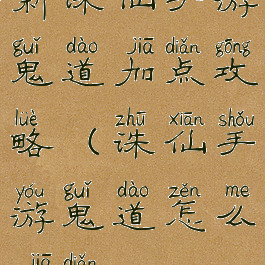 新诛仙手游
guǐ dào jiā diǎn gōng
鬼道加点攻
lüè zhū xiān shǒu
略（诛仙手
yóu guǐ dào zěn me
游鬼道怎么
jiā diǎn